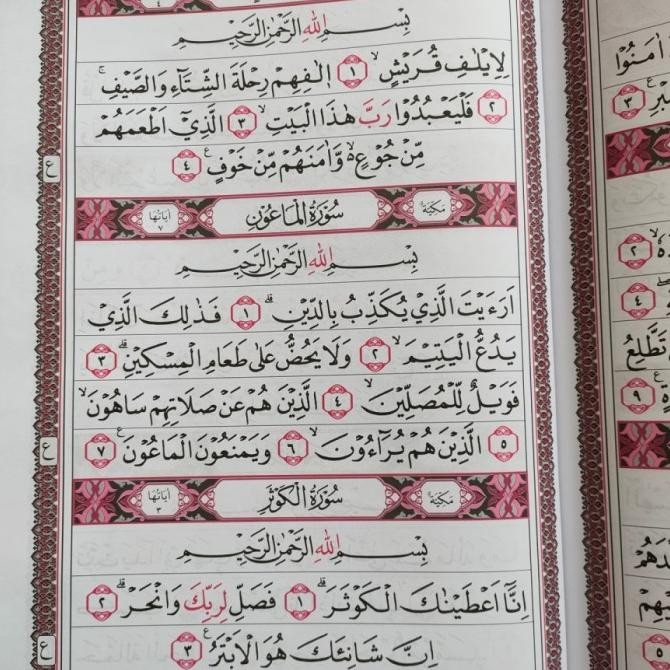 بِسْمِ اللهِ الرَّحْمٰنِ الرَّحِيْمِ
لِاِيْلٰفِ قُرَيْشٍۙ ١ اٖلٰفِهِمْ رِحْلَةَ الشِّتَٓاءِ وَالصَّيْفِۚ
٢ فَلْيَعْبُدُوا رَبَّ هٰذَا الْبَيْتِۙ ٣ اَلَّذٖٓي اَطْعَمَهُمْ
مِنْ جُوعٍ وَاٰمَنَهُمْ مِنْ خَوْفٍ ٤
ع
مَكِّيَّةٌ سُورَةُ الْمَاعُونِ اٰيَاتُهَا ٧
بِسْمِ اللهِ الرَّحْمٰنِ الرَّحِيْمِ
اَرَءَيْتَ الَّذٖي يُكَذِّبُ بِالدّٖينِۜ ١ فَذٰلِكَ الَّذٖي
يَدُعُّ الْيَتٖيمَۙ ٢ وَلَا يَحُضُّ عَلٰى طَعَامِ الْمِسْكٖينِۜ ٣
فَوَيْلٌ لِلْمُصَلّٖينَۙ ٤ اَلَّذٖينَ هُمْ عَنْ صَلَاتِهِمْ سَاهُونَۙ
٥ اَلَّذٖينَ هُمْ يُرَٓاؤُنَۙ ٦ وَيَمْنَعُونَ الْمَاعُونَ ٧
ع
مَكِّيَّةٌ سُورَةُ الْكَوْثَرِ اٰيَاتُهَا ٣
بِسْمِ اللهِ الرَّحْمٰنِ الرَّحِيْمِ
اِنَّٓا اَعْطَيْنَاكَ الْكَوْثَرَۜ ١ فَصَلِّ لِرَبِّكَ وَانْحَرْۜ ٢
اِنَّ شَانِئَكَ هُوَ الْاَبْتَرُ ٣
ع